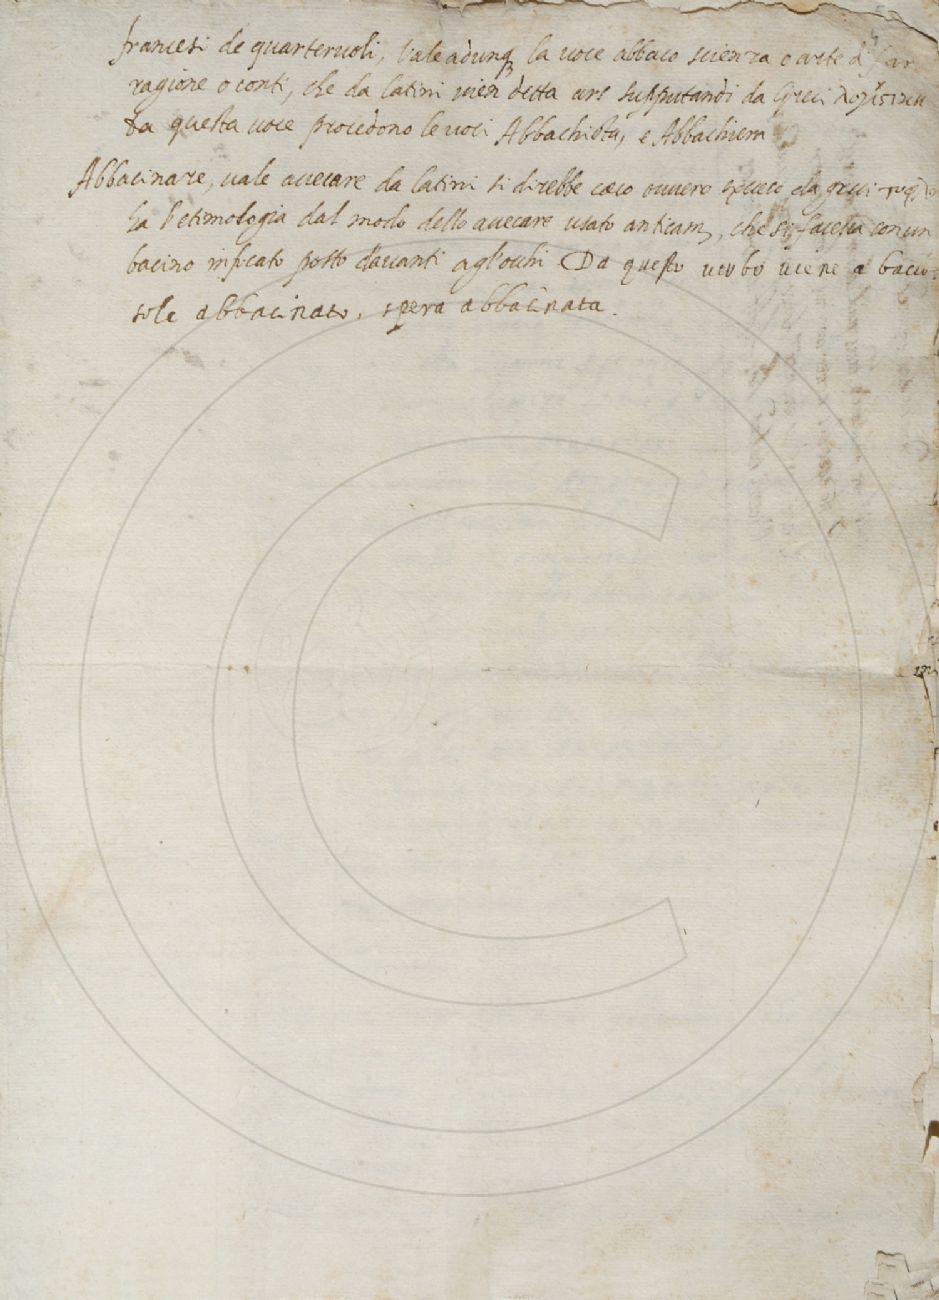 francesi de quarteruoli, Vale adunq; la uoce abbaco scienza o arte di far
ragione o conti, che da latini uien detta ars supputandi da Greci λογιστικη
da questa uoce procedono le uoci Abbachista, e Abbachiera
Abbacinare, uale accecare da latini si direbbe cæco ouuero exceco da greci
ha l'etimologia dal modo dello accecare usato anticam, che si faceua con un
bacino infocato posto dauanti agl'occhi Da questo uerbo uiene a baci
sole abbacinato, spera abbacinata.